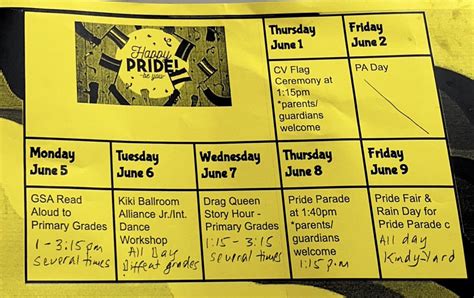 Happy
PRIDE!
-be you-
Thursday
June 1
Friday
June 2
CV Flag
Ceremony at
1:15pm
*parents/
guardians
welcome
PA Day
Monday
June 5
Tuesday
June 6
Wednesday
June 7
Thursday
June 8
Friday
June 9
GSA Read
Aloud to
Primary Grades
1 - 3:15pm
several times
Kiki Ballroom
Alliance Jr./Int.
Dance
Workshop
All Day
Diffeat grades
Drag Queen
Story Hour -
Primary Grades
1:15 - 3:15
several times
Pride Parade
at 1:40pm
*parents/
guardians
welcome
1:15 p.m
Pride Fair &
Rain Day for
Pride Parade c
All day
Kindy-Yard